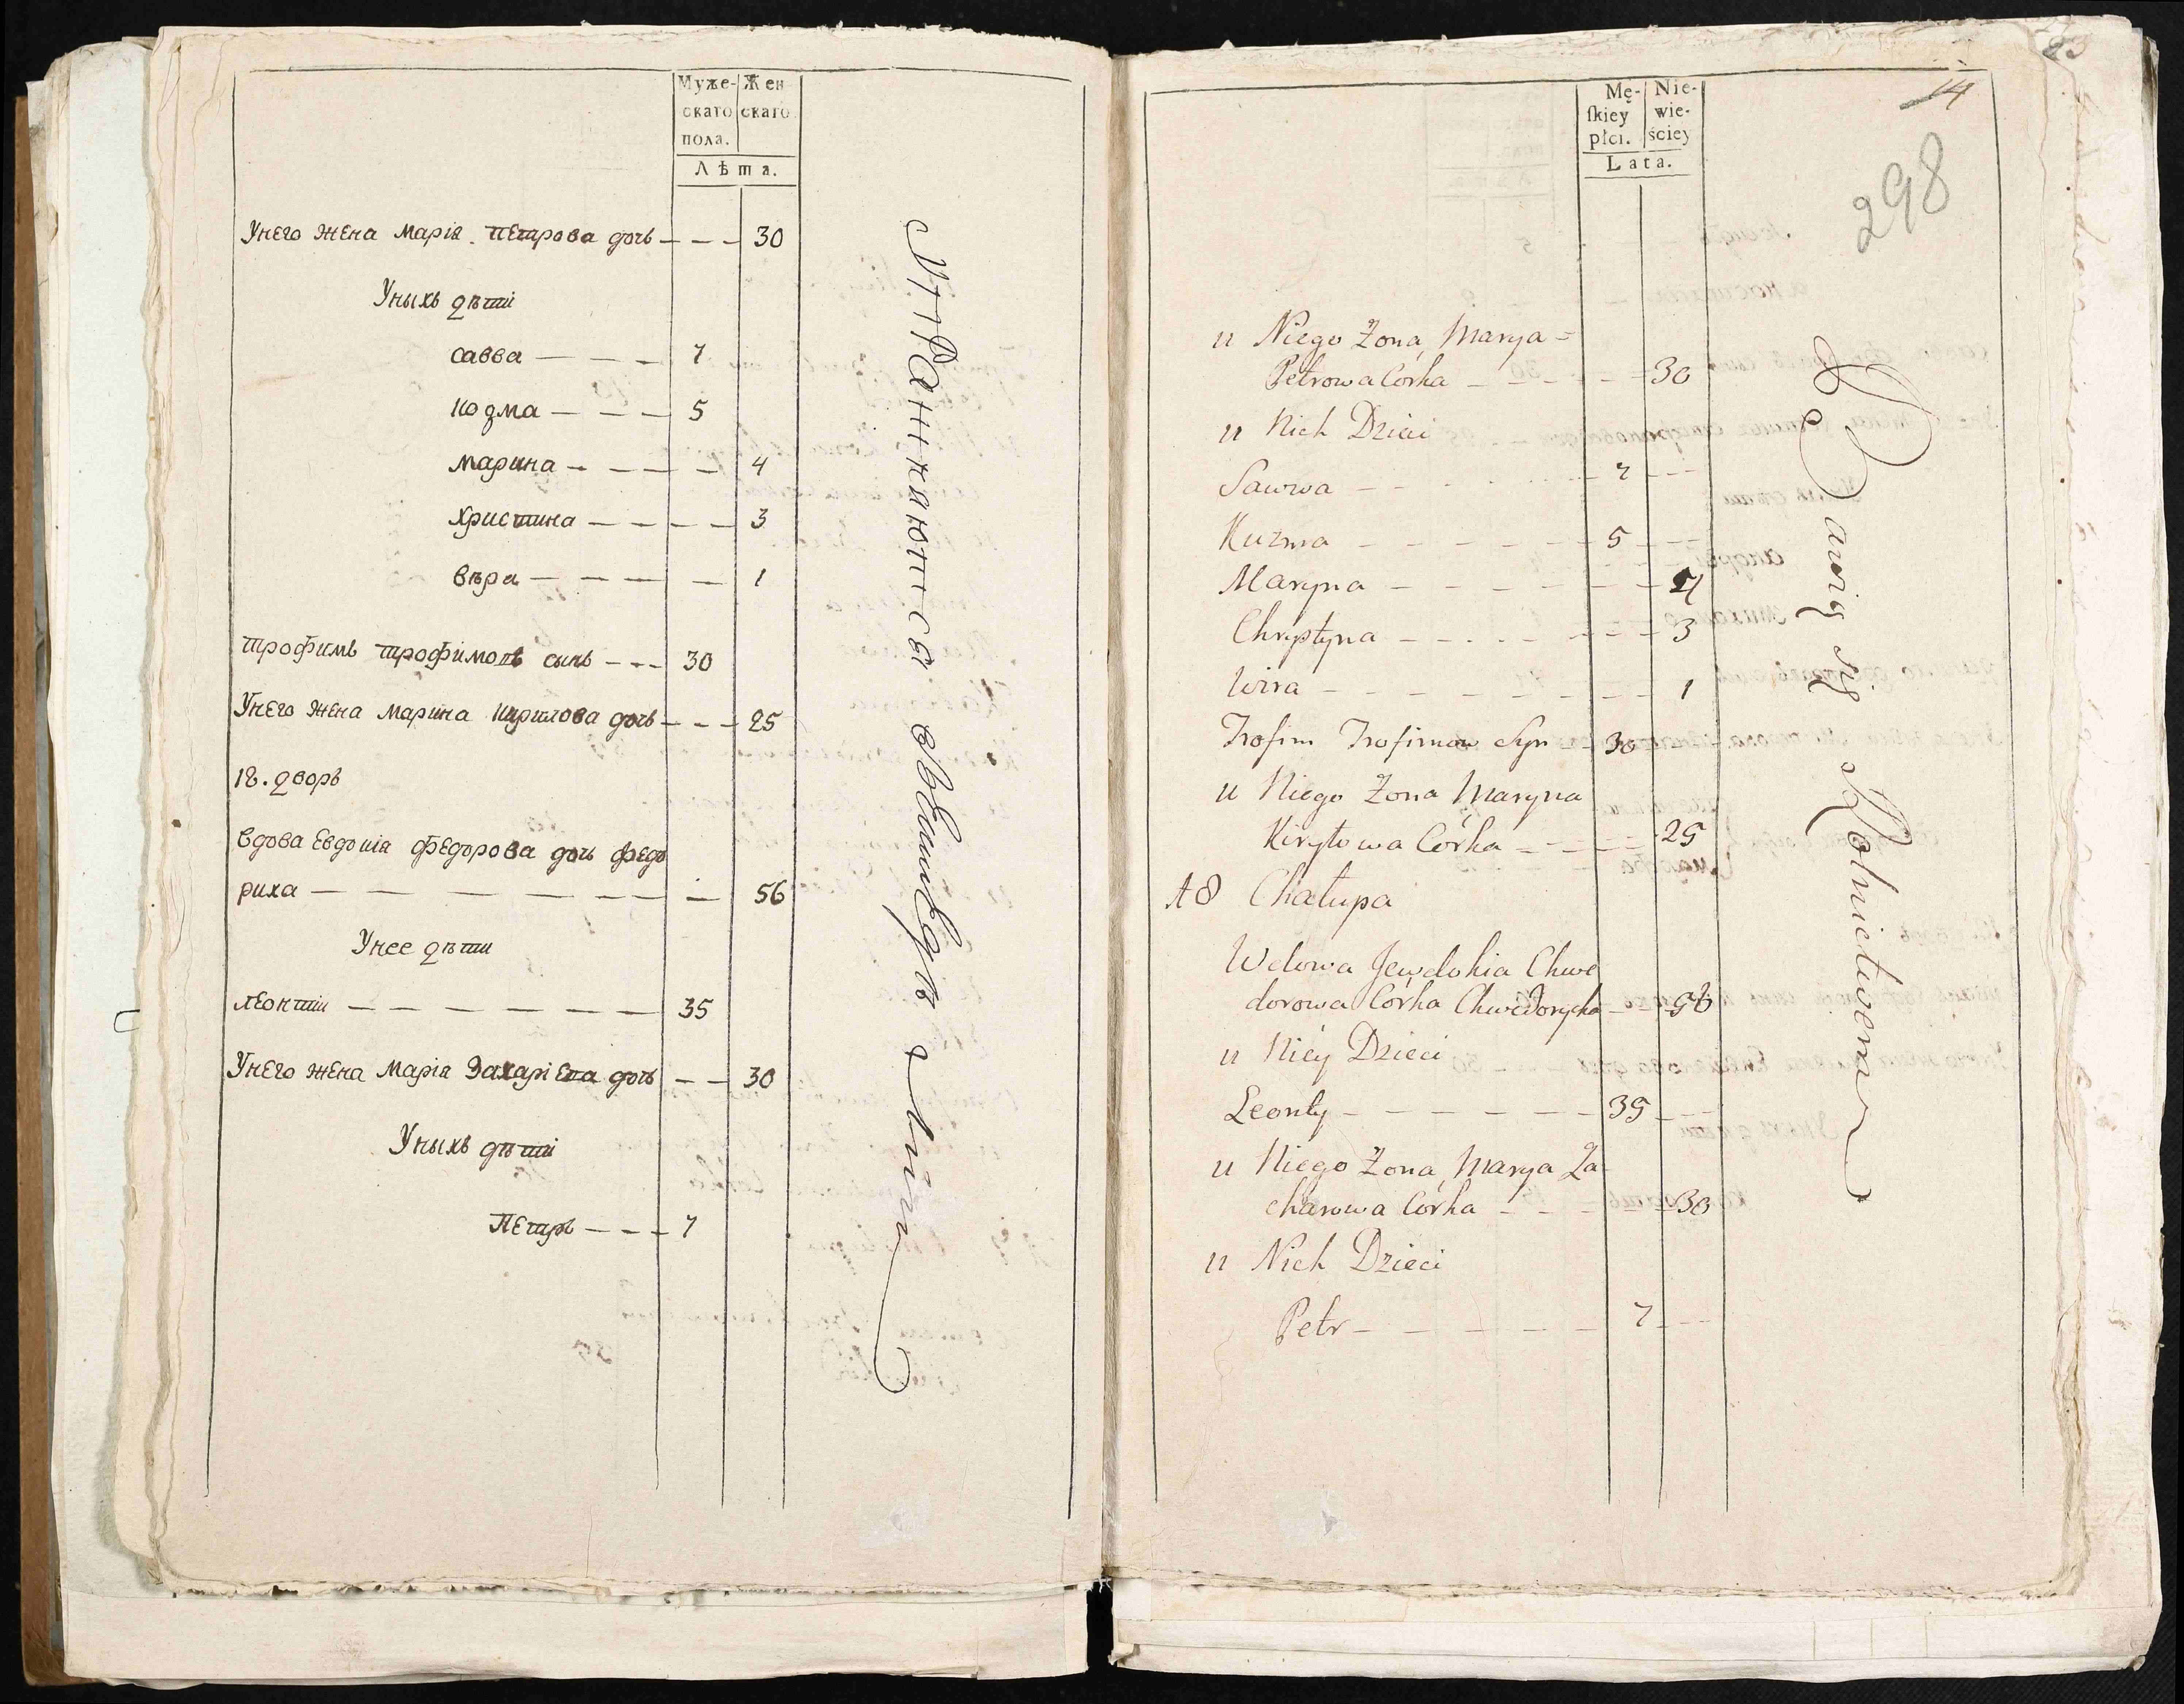 Муже-
скаго
пола.
Жен
скаго
Лѣта.
Унего жена марія. петрова дочь — — — 30
Уныхъ дѣти
савва — — — 7
козма — — — 5
марина — — — — 4
христина — — — — 3
вѣра — — — — 1
трофимъ трофимовъ сынъ — — — 30
Унего жена марина кирилова дочь — — — 25
18. дворъ
вдова Евдокіа федорова дочь федо
риха — — — — — — — — 56
Унее дѣти
леонтіи — — — — — — 35
Унего жена маріа Захаріева дочь — — 30
Уныхъ дѣти
Петръ — — — 7
Упражняются въ земледѣліи
Mę-
ſkiey
płci.
Nie-
wie-
ściey
Lata.
14
298
u Niego Żona Marya =
Petrowa Córka — — — — — 30
u Nich Dzieci
Sawwa — — — — 7 - - -
Kuzma — — — — — — 5 - - -
Maryna — — — — — — — 4
Chrystyna — — — — — — — 3
Wira — — — — — — — — 1
Trofim Trofimow Syn — — 30
u Niego Żona Maryna
Kiryłowa Córka — — — — — 25
18 Chałupa
Wdowa Jewdokia Chwe
dorowa Córka Chwedorycha — — — 56
u Niey Dzieci
Leonty — — — — — — 35 - - -
u Niego Żona Marya Za
charowa Córka — — — — — 30
u Nich Dzieci
Petr — — — — — 7 - - -
Bawią się Rolnictwem